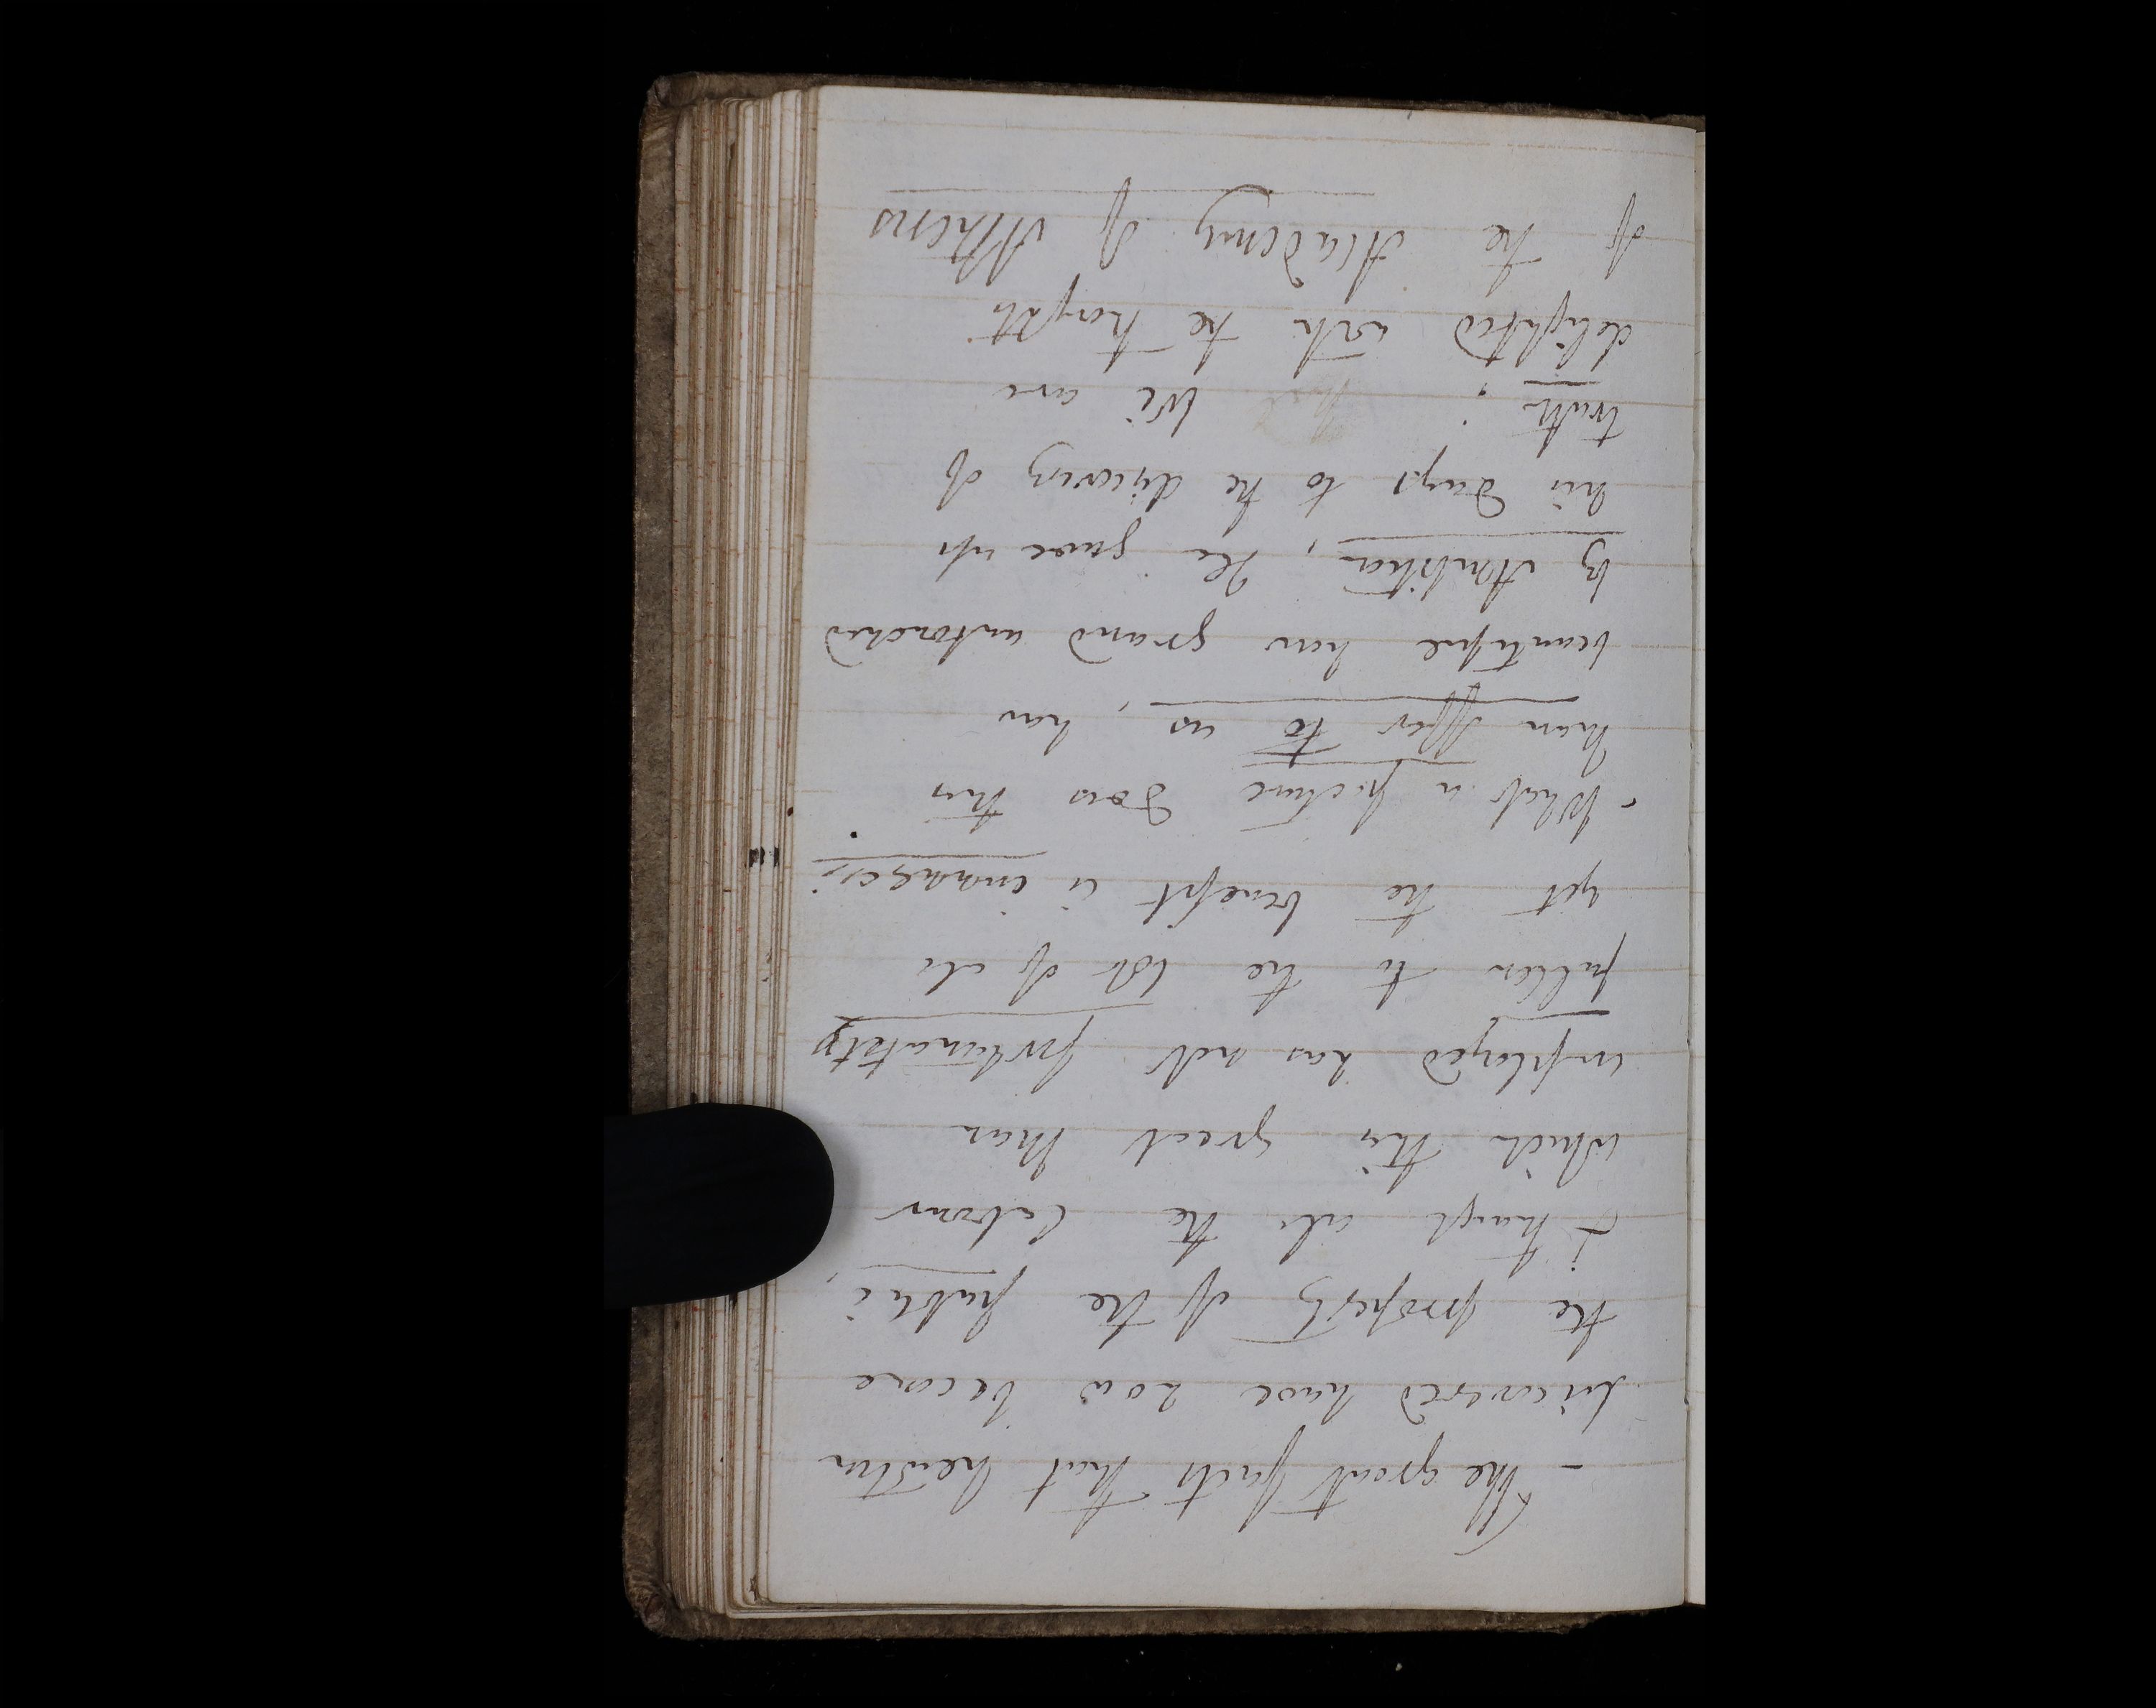 - The great facts that Newton
discovered have now become
the property of the public,
& though all the labour
which this great Man
employed has not fortunately
fallen to the lot of all
yet the benefit is endless;
- What a picture does this
Man offer to us, how
beautiful how grand untouched
by Ambition, He gave up
his days to the discovery of
truth; We are
delighted with the thoughts
of the Academy of Athens